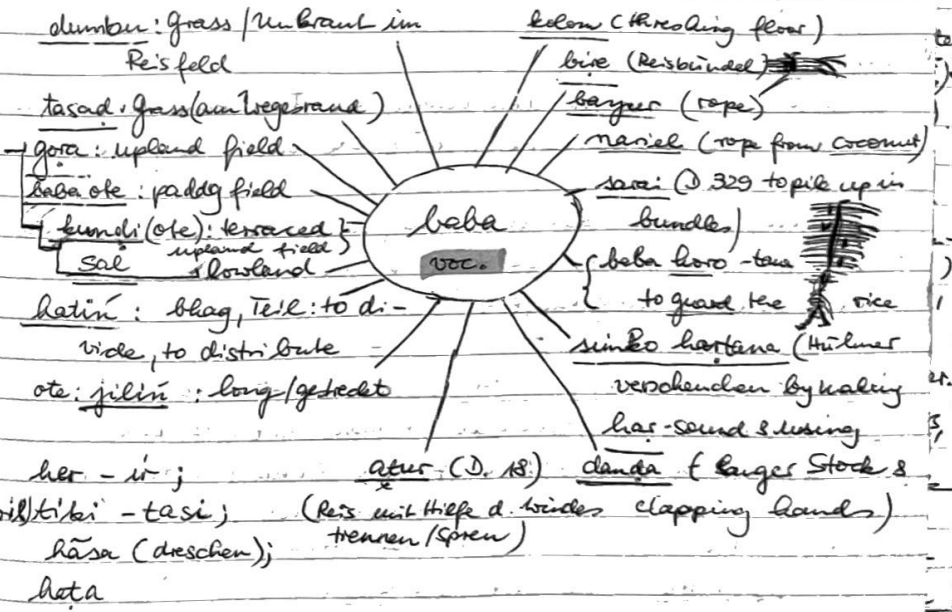 dumbu: Grass/Unkraut im
Reisfeld
tasad: Grass (am Wegesrand)
gora: upland field
baba ote: paddy field
kundi (ote): terraced
upland field
sal lowland
hatiń: bhag, Teil: to di-
vide, to distribute
ote: jiliń: long/gestreckt
her - ir;
tibi - tasi;
hãsa (dreschen);
hata
baba
voc.
kolom (threshing floor)
bire (Reisbündel)
bayer (rope)
nariel (rope from coconut)
sarai (D. 329 to pile up in
bundles)
baba horo-tana
to guard the rice
simko hartana (Hühner
verscheuchen by making
har-sound & using
danda (langer Stock &
clapping hands)
atur (D. 18.)
(Reis mit Hilfe d. Windes
trennen/Spreu)